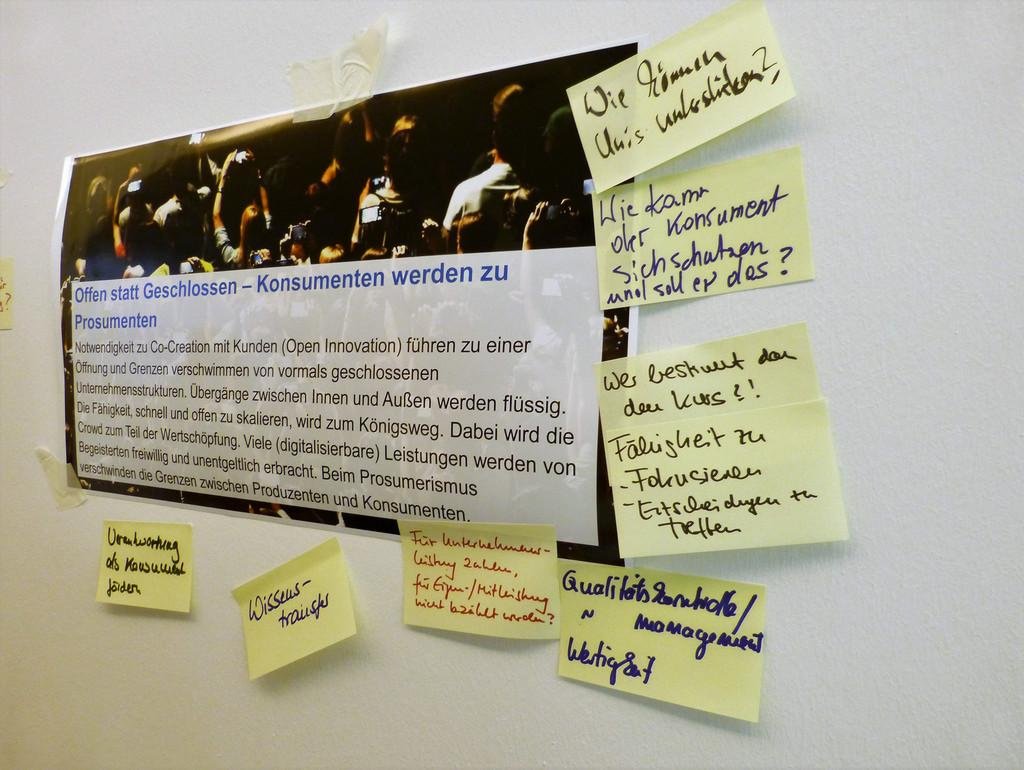 Offen statt Geschlossen – Konsumenten werden zu
Prosumenten
Notwendigkeit zu Co-Creation mit Kunden (Open Innovation) führen zu einer
Öffnung und Grenzen verschwimmen von vormals geschlossenen
Unternehmensstrukturen. Übergänge zwischen Innen und Außen werden flüssig.
Die Fähigkeit, schnell und offen zu skalieren, wird zum Königsweg. Dabei wird die
Crowd zum Teil der Wertschöpfung. Viele (digitalisierbare) Leistungen werden von
Begeisterten freiwillig und unentgeltlich erbracht. Beim Prosumerismus
verschwinden die Grenzen zwischen Produzenten und Konsumenten.
Wie können
Unis unterstützen?
Wie kann
der Konsument
sich schützen
und soll er das?
Wer bestimmt dann
den Kurs?!
Fähigkeit zu
- Fokusieren
- Entscheidungen zu
treffen
Verantwortung
als Konsument
fördern
Wissens-
transfer
Für Unternehmens-
leistung zahlen,
für Eigen-/Mitleistung
nicht bezahlt werden?
Qualitätskontrolle/
~ management
Wertigkeit